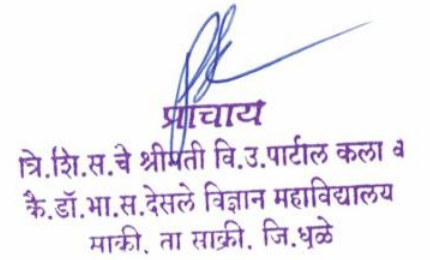 प्राचाय
त्रि.शि.स.चे श्रीमती वि.उ.पाटील कला व
कै.डॉ.भा.स.देसले विज्ञान महाविद्यालय
साक्री. ता साक्री. जि.धुळे